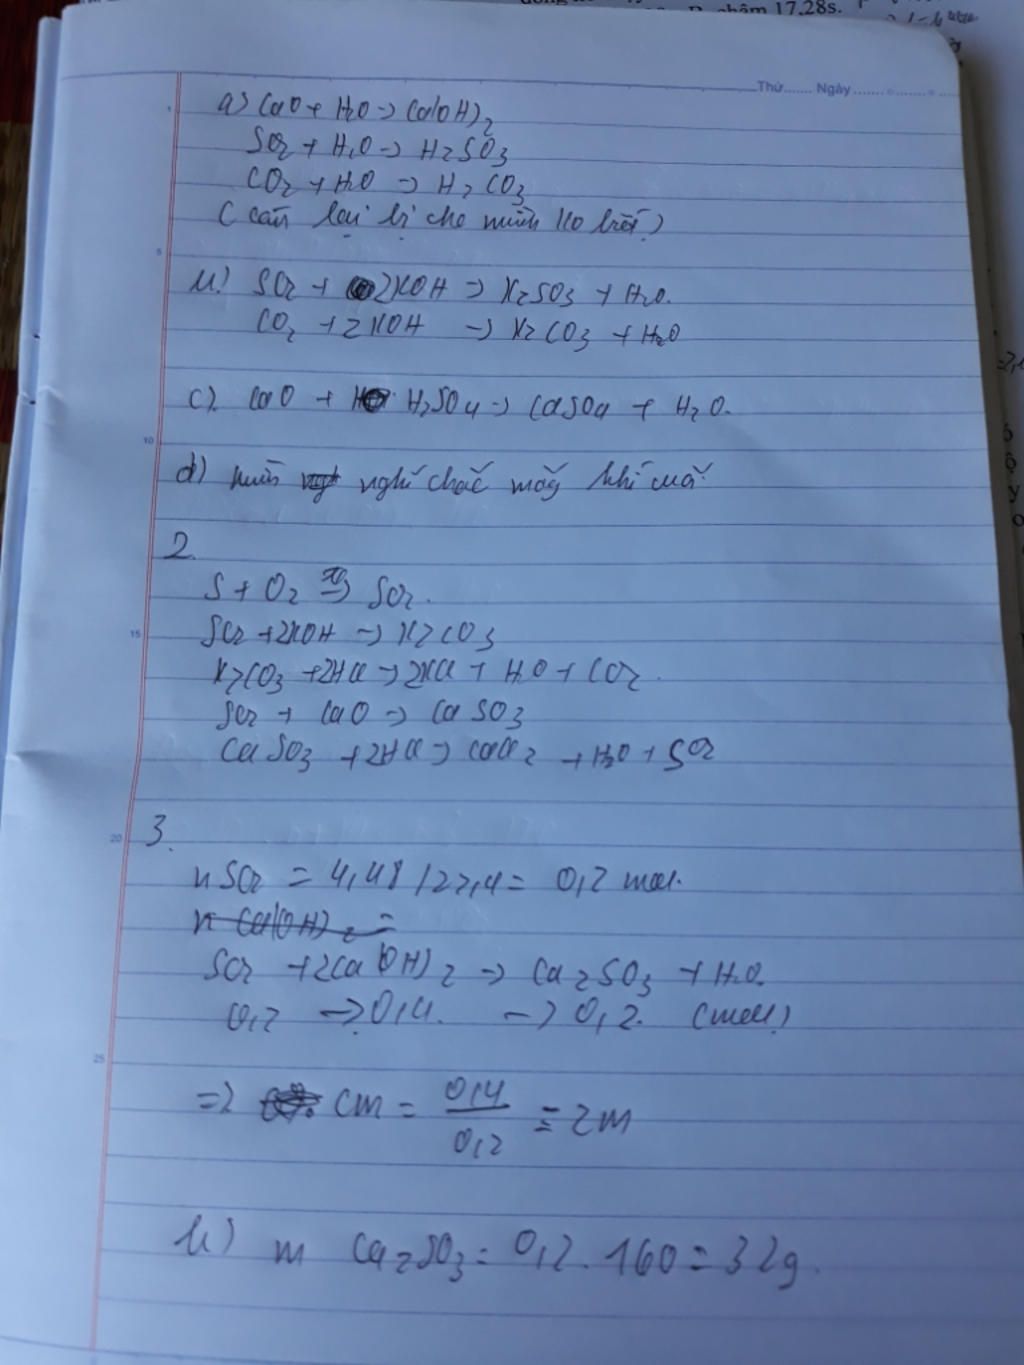 chậm 17,28s.
Thứ....... Ngày .......
a) CaO + H2O -> Ca(OH)2
SO2 + H2O -> H2SO3
CO2 + H2O -> H2CO3
(còn lại bị che mình ko biết)
5
b) SO2 + 2KOH -> K2SO3 + H2O.
CO2 + 2KOH -> K2CO3 + H2O
c). CaO + H2SO4 -> CaSO4 + H2O.
10
d) mình nghĩ chắc mấy khí
2.
S + O2 -> SO2.
15
SO2 + 2KOH -> K2CO3
K2CO3 + 2HCl -> 2KCl + H2O + CO2.
SO2 + CaO -> CaSO3
CaSO3 + 2HCl -> CaCl2 + H2O + SO2
20
3.
nSO2 = 4,48/22,4 = 0,2 mol.
n Ca(OH)2 =
SO2 + 2Ca(OH)2 -> Ca2SO3 + H2O.
0,2 -> 0,4. -> 0,2. (mol)
25
=> CM = 0,4 / 0,2 = 2M
b) m Ca2SO3 = 0,2 . 160 = 32g.